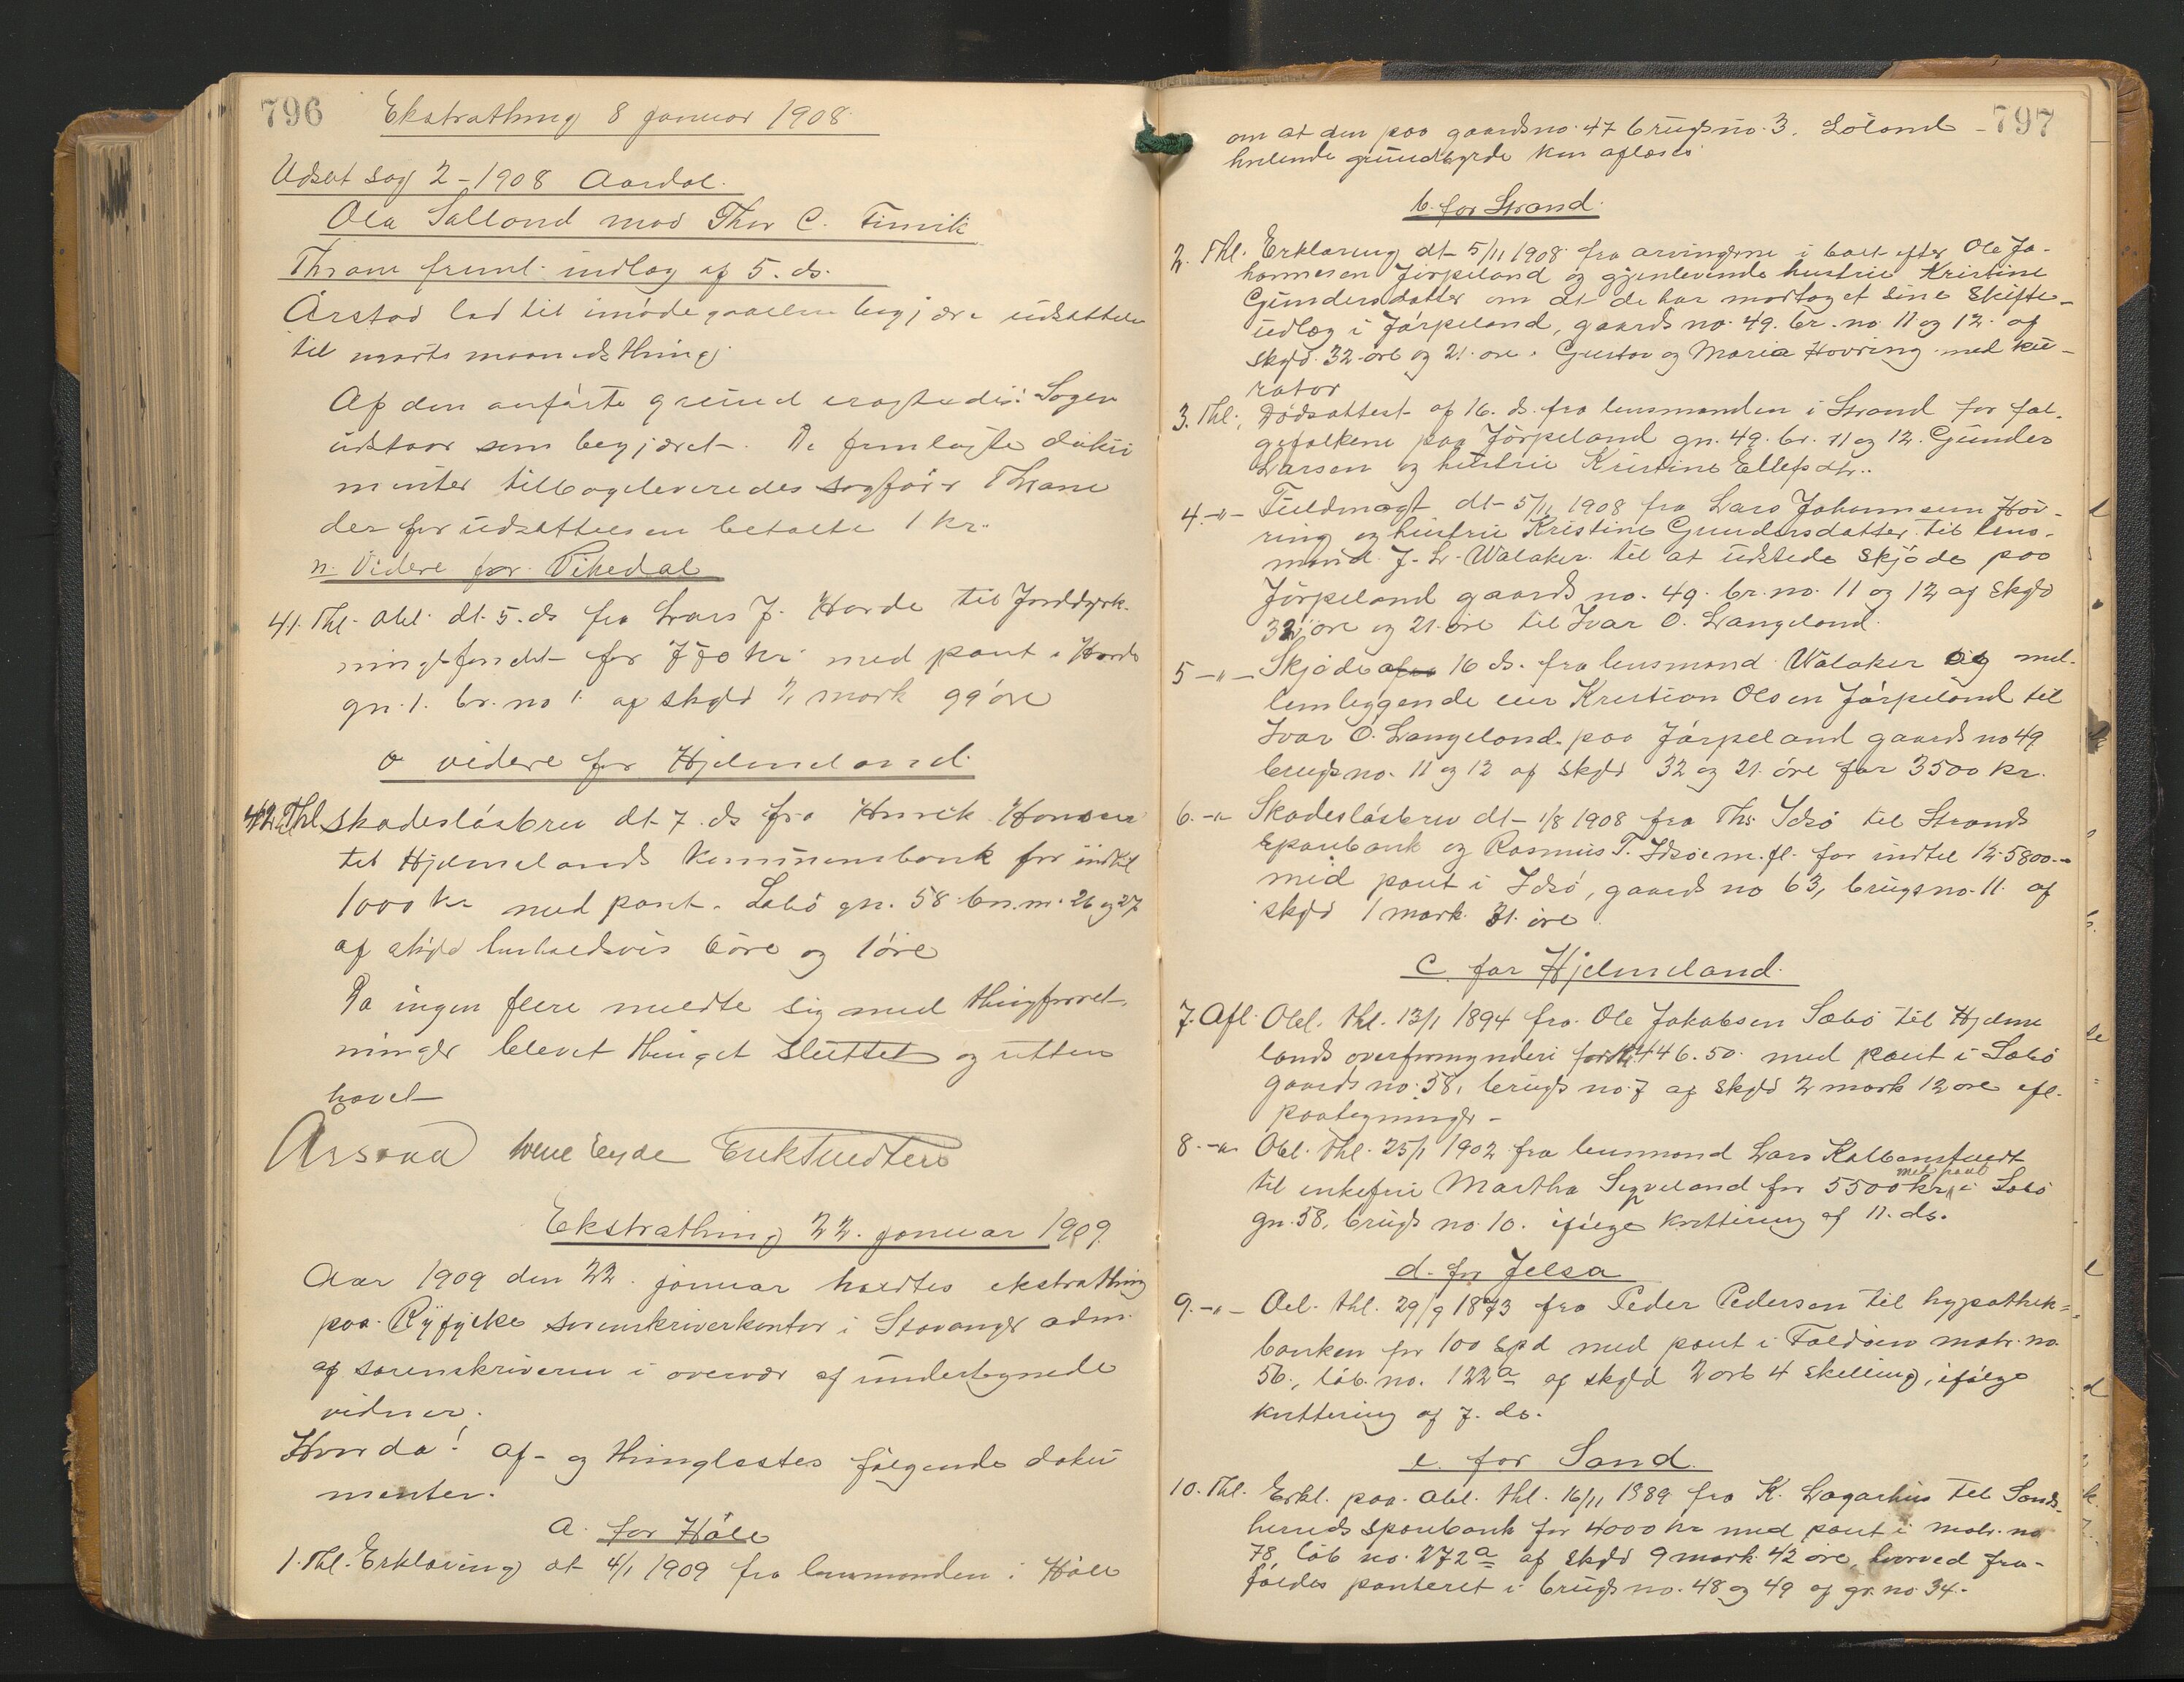 796
Ekstrathing 8 januar 1908.
Udsat sag 2-1908 Aardal.
Ola Salland mod Thor C. Tunvik
Thrane freml. indlæg af 5. ds.
Årstad lod til imødegaaelse begjære udsættelse
til marts maanedsthing.
Af den anførte grund eragtedes: Sagen
udstaar som begjæret. De fremlagte doku
menter tilbageleveredes sagfører Thrane
der for udsættelsen betalte 1 kr.
n. Videre for Vikedal
41. Thl. obl. dt. 5. ds fra Lars J. Horde til Jorddyrk-
ningsfondet for 770 kr. med pant i Horde
gn. 1. br. no 1. af skyld mark 99 øre
o videre for Hjelmeland.
42. Thl. skadesløsbrev dt. 7. ds fra Henrik Hansen
til Hjelmelands kommunebank for indtil
1000 kr med pant i Sæbø gn. 58 bn. nr. 26 og 27
af skyld henholdsvis 6 øre og 1 øre
Da ingen flere meldte sig med thingforret-
ninger blevet thinget sluttet og retten
hævet
Ekstrathing 22. januar 1909.
Aar 1909 den 22. januar holdtes ekstrathing
paa Ryfylke sorenskriverkontor i Stavanger adm.
af sorenskriveren i overvær af undertegnede
vidner.
Hvorda! af- og thinglæstes følgende doku
menter.
a. for Høle
1. Thl. Erklæring dt 4/1 1909 fra lensmanden i Høle
797
om at den paa gaardsno. 47 brugsno. 3. Løland
hvilende grundbyrde kan aflæses
b. for Strand.
2. Thl. Erklæring dt 5/11 1908 fra arvingerne i boet efter Ole Jo-
hannesen Jørpeland og gjenlevende hustru Kristine
Gundersdatter om at de har modtaget sine skifte-
udlæg i Jørpeland, gaards no. 49. br. no. 11 og 12. af
skyld. 32 øre og 21 øre. Gustav og Maria Hovring med ku-
rator
3. Thl. Dødsattest af 16. ds. fra lensmanden i Strand for føl-
gefolkene paa Jørpeland gn. 49. br. 11 og 12. Gunder
Larsen og hustru Kristine Ellefsdtr..
4. -"- Fuldmagt dt 5/11 1908 fra Lars Johannesen Hov-
ring og hustru Kristine Gundersdatter til lens-
mand J. L. Walaker til at udstede skjøde paa
Jørpeland gaards no. 49. br. no. 11 og 12 af skyld
32 øre og 21 øre til Ivar O. Langeland.
5 -"- Skjøde 16 ds. fra lensmand Walaker og mel-
lemliggende eier Kristian Olsen Jørpeland til
Ivar O. Langeland paa Jørpeland gaards no 49
brugsno. 11 og 12 af skyld 32 og 21 øre for 3500 kr.
6. -"- Skadesløsbrev dt 1/8 1908 fra Ths. Idsø til Strands
sparebank og Rasmus T. Idsøe m. fl. for indtil kr. 5800.-
med pant i Idsø, gaards no 63, brugsno. 11. af
skyld 1 mark 31 øre
c. for Hjelmeland.
7. Afl. Obl. thl. 13/1 1894 fra Ole Jakobsen Sæbø til Hjelme
lands overformynderi for kr 446.50. med pant i Sæbø
gaards no. 58, brugs no. 7 af skyld 2 mark 12 øre ifl.
paategninger -
8. -"- Obl. thl. 25/1 1902 fra lensmand Lars Kolbenstvedt
til enkefru Martha Sigveland for 5500 kr med pant i Sæbø
gn. 58, brugs no. 10. ifølge kvittering af 11. ds.
d. for Jelsa
9. -"- Obl. thl. 29/9 1873 fra Peder Pedersen til hypothek-
banken for 100 spd med pant i Foldøen matr. no.
56., løb. no. 122a af skyld 2 ort 4 skilling, ifølge
kvittering af 7. ds.
e. for Sand.
10. Thl. Erkl. paa obl. thl. 16/11 1889 fra K. Lagarhus til Sands-
herreds sparebank for 4000 kr med pant i matr. no
78, løb no. 272a af skyld 9 mark 42 øre, hvorved fra-
faldes panteret i brugsno. 48 og 49 af gr. no 34.-